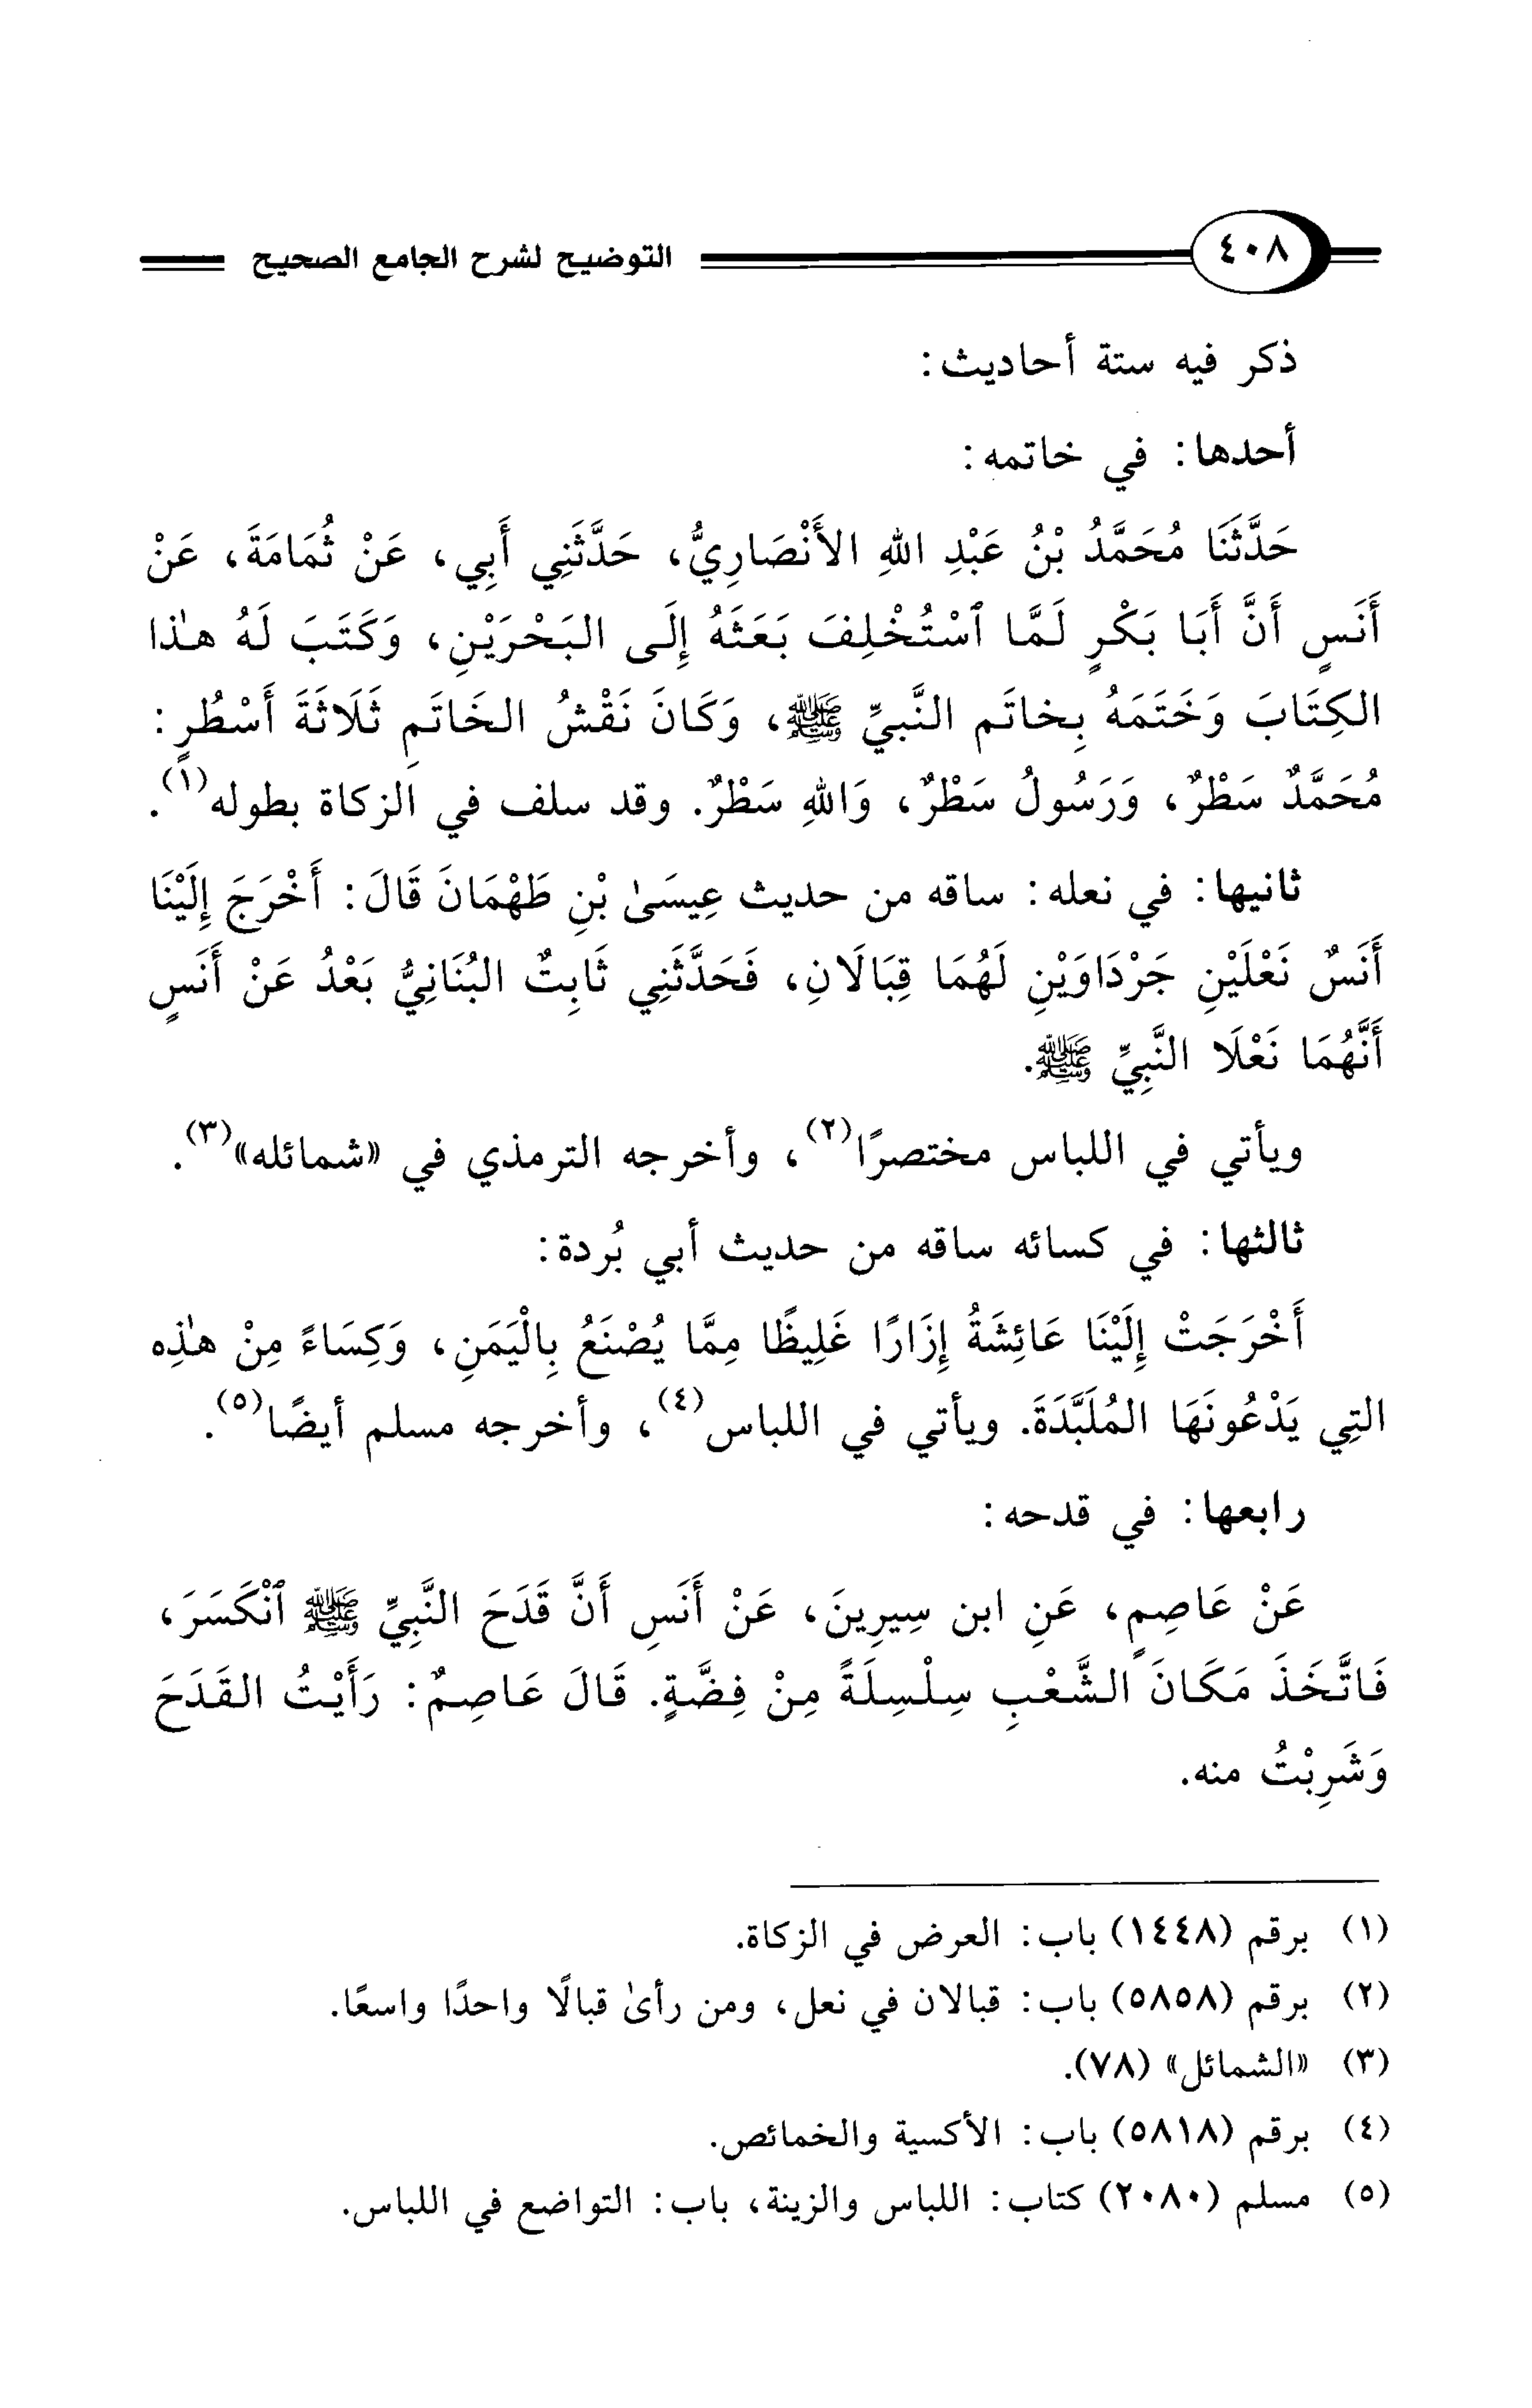 ٤٠٨ التوضيح لشرح الجامع الصحيح
ذكر فيه ستة أحاديث:
أحدها: في خاتمه:
حَدَّثَنَا مُحَمَّدُ بْنُ عَبْدِ اللهِ الأَنْصَارِيُّ، حَدَّثَنِي أَبِي، عَنْ ثُمَامَةَ، عَنْ
أَنَسٍ أَنَّ أَبَا بَكْرٍ لَمَّا ٱسْتُخْلِفَ بَعَثَهُ إِلَى البَحْرَيْنِ، وَكَتَبَ لَهُ هذا
الكِتَابَ وَخَتَمَهُ بِخاتَمِ النَّبيِّ ﷺ، وَكَانَ نَقْشُ الخَاتَمِ ثَلَاثَةَ أَسْطُرٍ:
مُحَمَّدٌ سَطْرٌ، وَرَسُولُ سَطْرٌ، وَاللهِ سَطْرٌ. وقد سلف في الزكاة بطوله(١).
ثانيها: في نعله: ساقه من حديث عِيسَىٰ بْنِ طَهْمَانَ قَالَ: أَخْرَجَ إِلَيْنَا
أَنَسٌ نَعْلَيْنِ جَرْدَاوَيْنِ لَهُمَا قِبَالَانِ، فَحَدَّثَنِي ثَابِتٌ البُنَانِيُّ بَعْدُ عَنْ أَنَسٍ
أَنَّهُمَا نَعْلَا النَّبِيِّ ﷺ.
ويأتي في اللباس مختصرًا(٢)، وأخرجه الترمذي في «شمائله»(٣).
ثالثها: في كسائه ساقه من حديث أبي بُردة:
أَخْرَجَتْ إِلَيْنَا عَائِشَةُ إِزَارًا غَلِيظًا مِمَّا يُصْنَعُ بِالْيَمَنِ، وَكِسَاءً مِنْ هذِه
التِي يَدْعُونَهَا المُلَبَّدَةَ. ويأتي في اللباس(٤)، وأخرجه مسلم أيضًا(٥).
رابعها: في قدحه:
عَنْ عَاصِمٍ، عَنِ ابن سِيرِينَ، عَنْ أَنَسِ أَنَّ قَدَحَ النَّبِيِّ ﷺ ٱنْكَسَرَ،
فَاتَّخَذَ مَكَانَ الشَّعْبِ سِلْسِلَةً مِنْ فِضَّةٍ. قَالَ عَاصِمٌ: رَأَيْتُ القَدَحَ
وَشَرِبْتُ منه.
(١) برقم (١٤٤٨) باب: العرض في الزكاة.
(٢) برقم (٥٨٥٨) باب: قبالان في نعل، ومن رأىٰ قبالًا واحدًا واسعًا.
(٣) «الشمائل» (٧٨).
(٤) برقم (٥٨١٨) باب: الأكسية والخمائص.
(٥) مسلم (٢٠٨٠) كتاب: اللباس والزينة، باب: التواضع في اللباس.